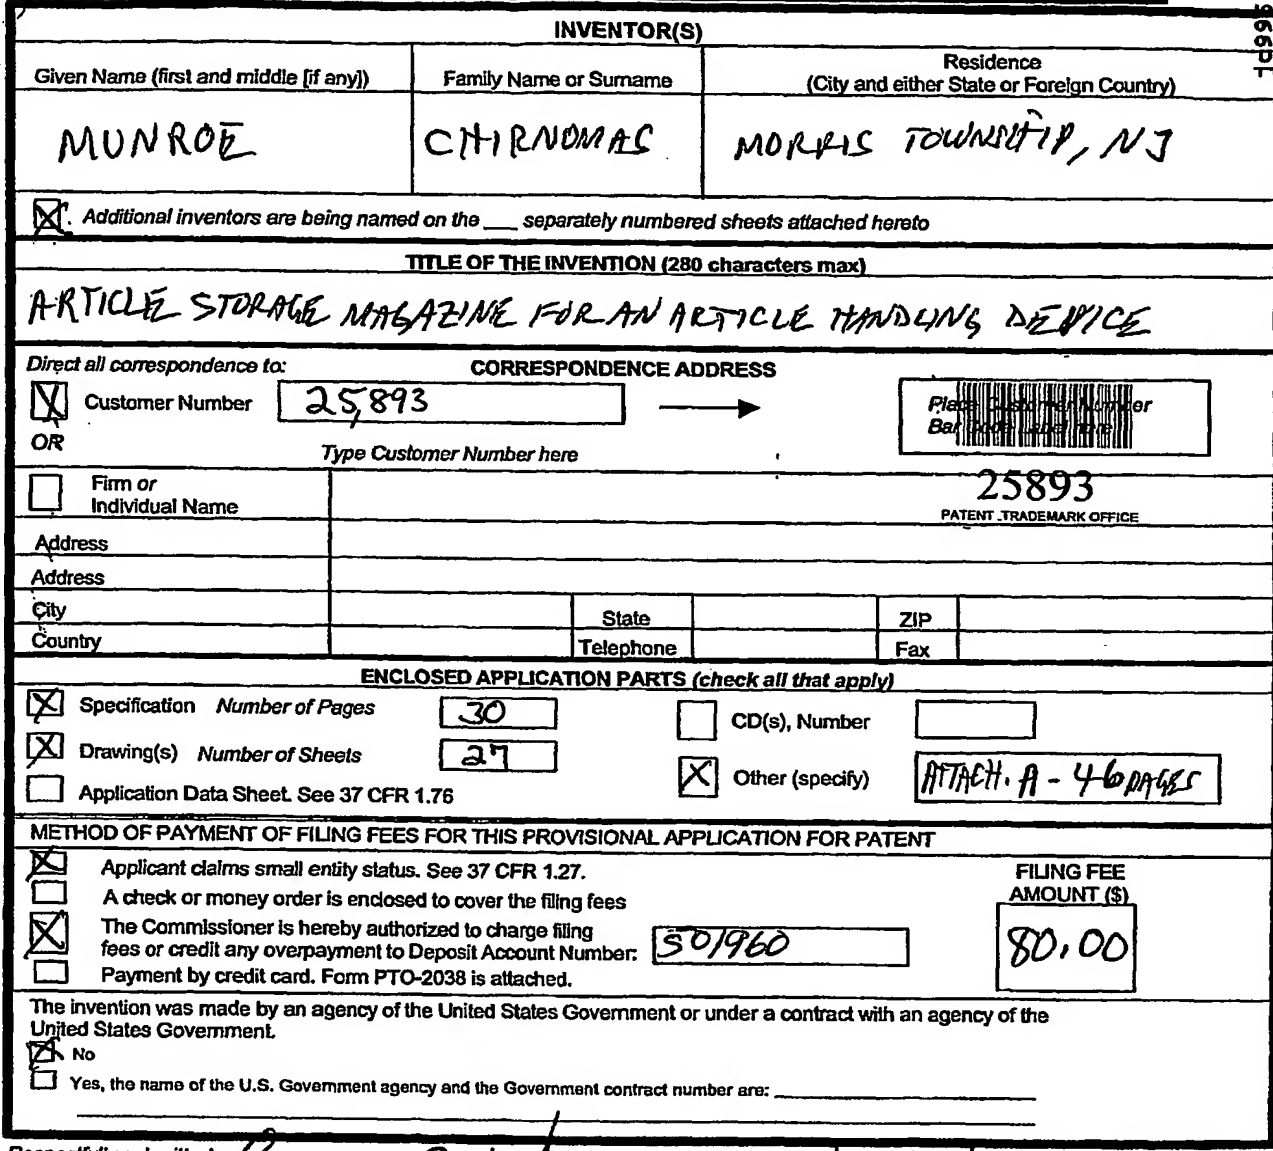 INVENTOR(S)
Given Name (first and middle [if any]) Family Name or Surname Residence (City and either State or Foreign Country)
MUNROE CHIRNOMAS MORRIS TOWNSHIP, NJ
Additional inventors are being named on the ___ separately numbered sheets attached hereto
TITLE OF THE INVENTION (280 characters max)
ARTICLE STORAGE MAGAZINE FOR AN ARTICLE HANDLING DEVICE
Direct all correspondence to: CORRESPONDENCE ADDRESS
Customer Number 25,893 Place Customer Number
Bar Code Label here
OR
Type Customer Number here
25893
PATENT TRADEMARK OFFICE
Firm or
Individual Name
Address
Address
City State ZIP
Country Telephone Fax
ENCLOSED APPLICATION PARTS (check all that apply)
Specification Number of Pages 30 CD(s), Number
Drawing(s) Number of Sheets 27 Other (specify) ATTACH. A - 46 PAGES
Application Data Sheet. See 37 CFR 1.76
METHOD OF PAYMENT OF FILING FEES FOR THIS PROVISIONAL APPLICATION FOR PATENT
Applicant claims small entity status. See 37 CFR 1.27. FILING FEE
AMOUNT ($)
A check or money order is enclosed to cover the filing fees
The Commissioner is hereby authorized to charge filing
fees or credit any overpayment to Deposit Account Number: 501960 80.00
Payment by credit card. Form PTO-2038 is attached.
The invention was made by an agency of the United States Government or under a contract with an agency of the
United States Government.
No
Yes, the name of the U.S. Government agency and the Government contract number are: